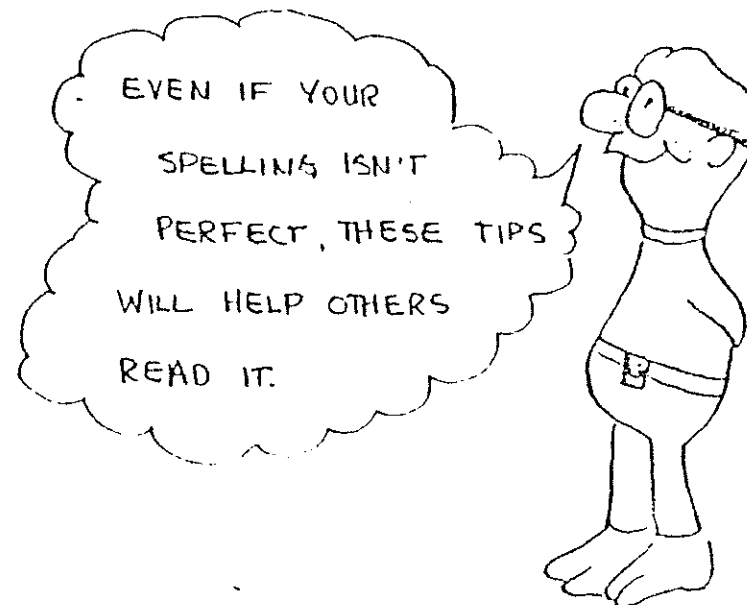 EVEN IF YOUR
SPELLING ISN'T
PERFECT, THESE TIPS
WILL HELP OTHERS
READ IT.